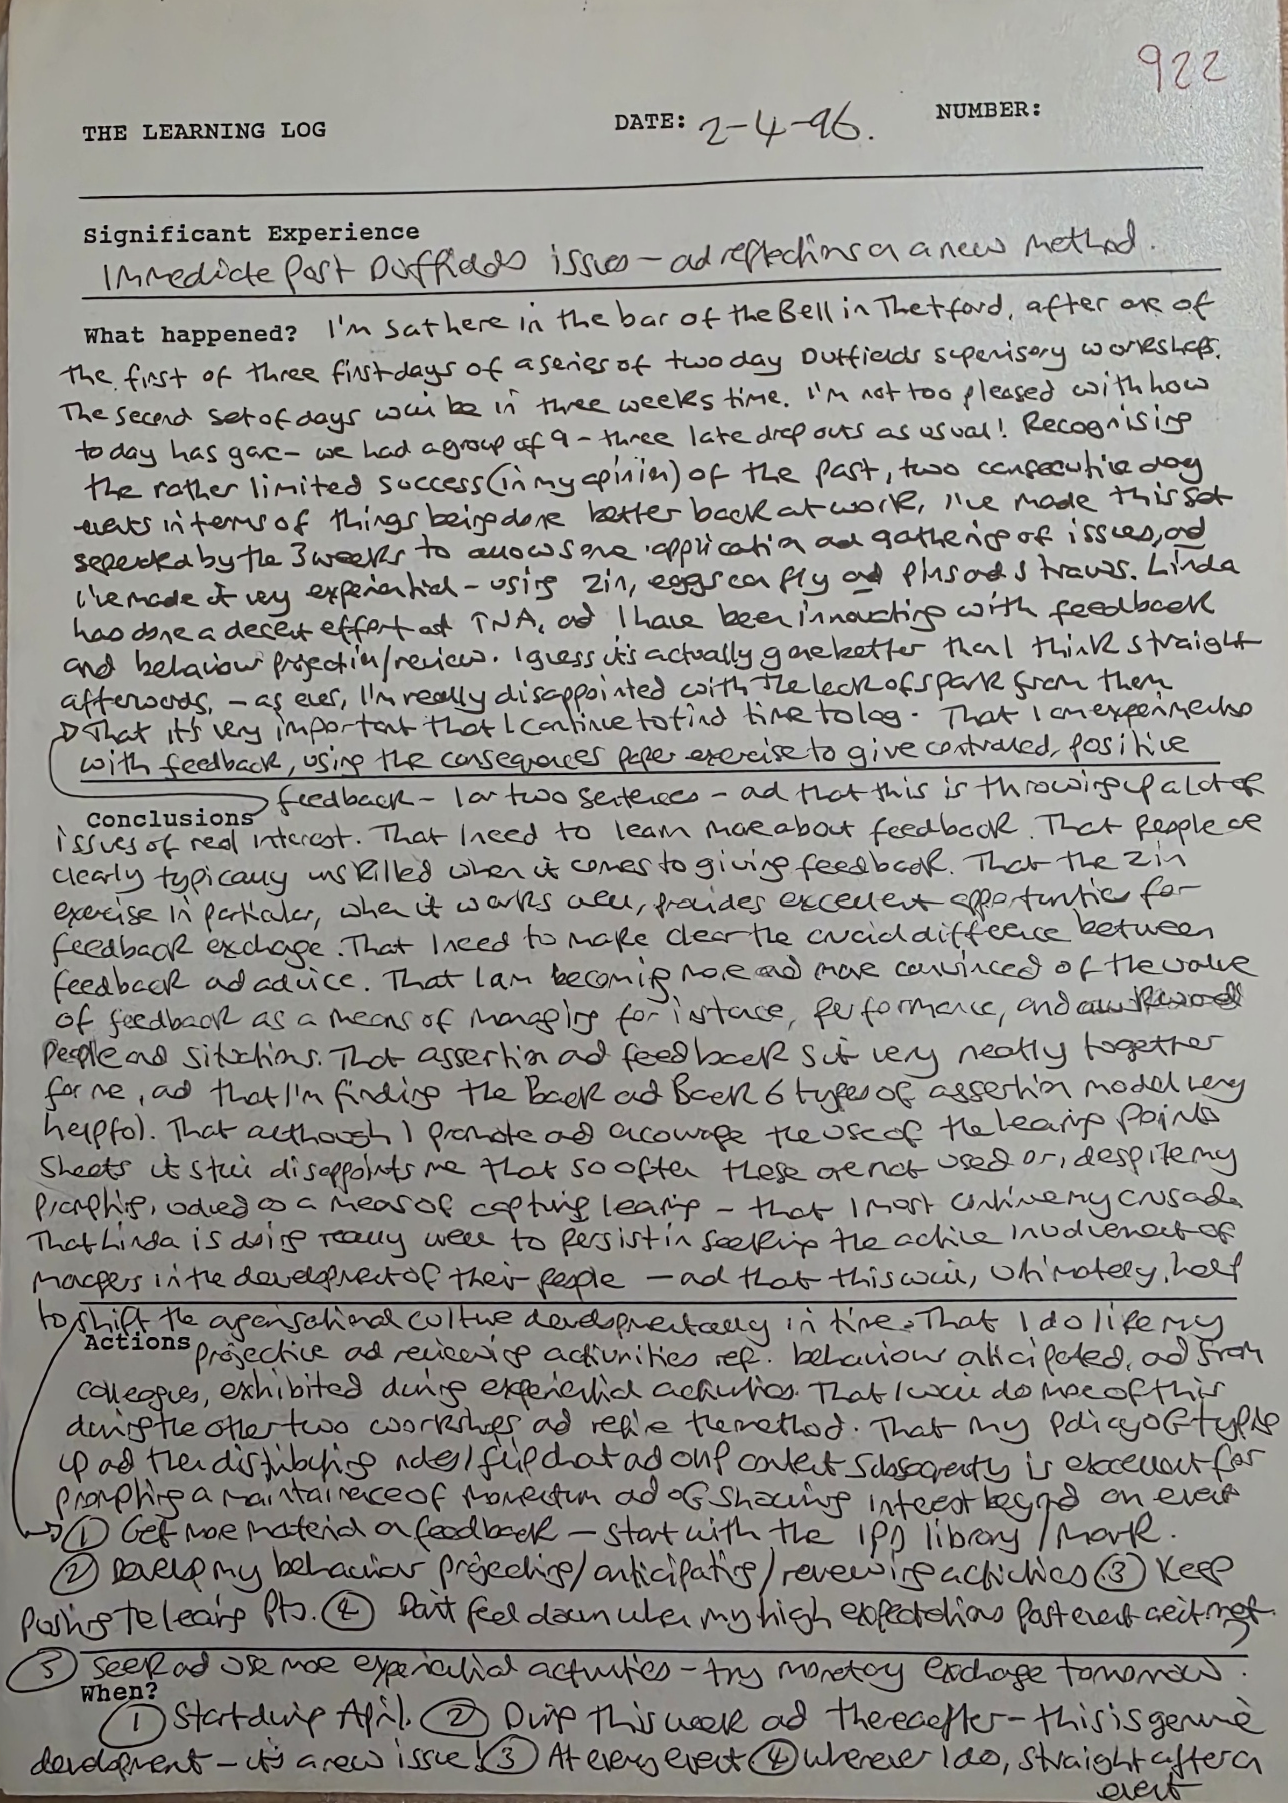 922
THE LEARNING LOG DATE: 2-4-96. NUMBER:
Significant Experience
Immediate Post Duffields issues - ad reflections on a new method.
What happened? I'm sat here in the bar of the Bell in Thetford, after one of
the first of three first days of a series of two day Duffields supervisory workshops.
The second set of days will be in three weeks time. I'm not too pleased with how
today has gone - we had a group of 9 - three late drop outs as usual! Recognising
the rather limited success (in my opinion) of the past, two consecutive day
events in terms of things being done better back at work, I've made this set
separated by the 3 weeks to allow some application and gathering of issues, and
I've made it very experiential - using Zin, eggs can fly and pins and straws. Linda
has done a decent effort at TNA, ad I have been innovating with feedback
and behaviour projection/review. I guess it's actually gone better than I think straight
afterwards, - as ever, I'm really disappointed with the lack of spark from them
That it's very important that I continue to find time to log. That I am experimenting
with feedback, using the consequences paper exercise to give controlled, positive
feedback - 1 or two sentences - ad that this is throwing up a lot of
Conclusions
issues of real interest. That I need to learn more about feedback. That people are
clearly typically unskilled when it comes to giving feedback. That the Zin
exercise in particular, when it works well, provides excellent opportunities for
feedback exchange. That I need to make clear the crucial difference between
feedback and advice. That I am becoming more and more convinced of the value
of feedback as a means of managing for instance, performance, and awkward
people and situations. That assertion and feedback sit very neatly together
for me, ad that I'm finding the Back and Back 6 types of assertion model very
helpful. That although I promote and encourage the use of the learning points
sheets it still disappoints me that so often these are not used or, despite my
prompting, valued as a means of capturing learning - that I must continue my crusade.
That Linda is doing really well to persist in seeking the active involvement of
managers in the development of their people - ad that this will, ultimately, help
to shift the organisational culture developmentally in time. That I do like my
Actions projective and reviewing activities ref. behaviour anticipated, ad from
colleagues, exhibited during experiential activities. That I will do more of this
during the other two workshops and refine the method. That my policy of typing
up ad then distributing notes/flipchart ad ohp content subsequently is excellent for
prompting a maintainence of momentum ad of showing interest beyond an event
① Get more material on feedback - start with the IPD library / Mark.
② Develop my behaviour projecting/anticipating/reviewing activities ③ Keep
pushing the learning pts. ④ Don't feel down when my high expectations post event aren't met.
⑤ Seek ad use more experiential activities - try monetary exchange tomorrow.
When?
① Start during April. ② During this week ad thereafter - this is genuine
development - it's a new issue! ③ At every event ④ Wherever I do, straight after an
event